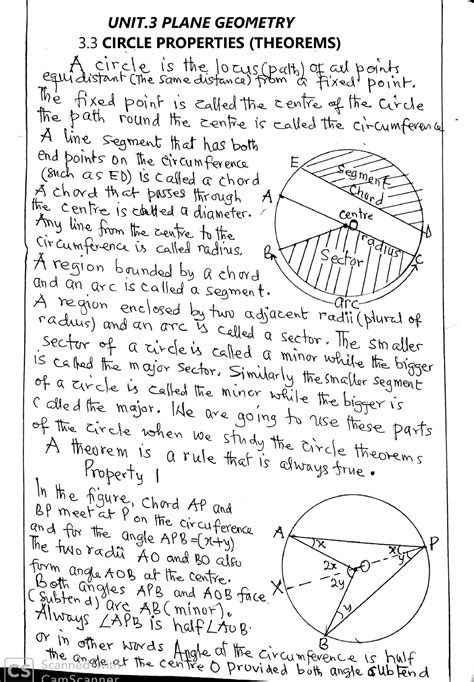 UNIT.3 PLANE GEOMETRY
3.3 CIRCLE PROPERTIES (THEOREMS)
A circle is the locus (path) of all points
equidistant (the same distance) from a fixed point.
The fixed point is called the centre of the circle
the path round the centre is called the circumference
A line segment that has both
end points on the circumference
(such as ED) is called a chord
A chord that passes through
the centre is called a diameter.
Any line from the centre to the
circumference is called radius.
A region bounded by a chord
and an arc is called a segment.
E
Segment
Chord
A
centre
O
D
radius
B
Sector
C
arc
A region enclosed by two adjacent radii (plural of
radius) and an arc is called a sector. The smaller
sector of a circle is called a minor while the bigger
is called the major sector. Similarly the smaller segment
of a circle is called the minor while the bigger is
called the major. We are going to use these parts
of the circle when we study the circle theorems
A theorem is a rule that is always true.
Property 1
In the figure, chord AP and
BP meet at P on the circuference
and for the angle APB=(x+y)
The two radii AO and BO also
form angle AOB at the centre.
Both angles APB and AOB face
(subtend) arc AB (minor).
Always ∠APB is half ∠AOB
A
x
x
P
y
2x
O
2y
X
y
B
or in other words Angle at the circumference is half
the angle at the centre O provided both angle subtend
CS
Scanned with
CamScanner